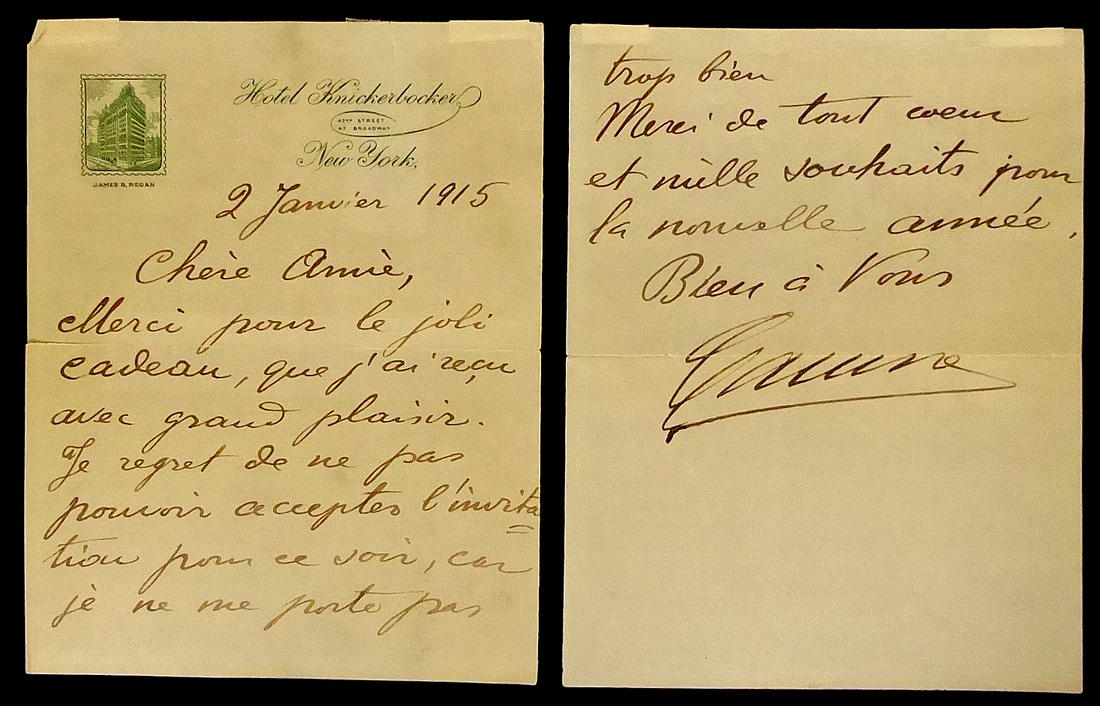 Hotel Knickerbocker
42ND STREET
AT BROADWAY
New York.
JAMES B. REGAN
2 Janvier 1915
Chère Amie,
Merci pour le joli
cadeau, que j'ai reçu
avec grand plaisir.
Je regret de ne pas
pouvoir accepter l'invita
tion pour ce soir, car
je ne me porte pas
trop bien
Merci de tout coeur
et mille souhaits pour
la nouvelle année.
Bien à Vous